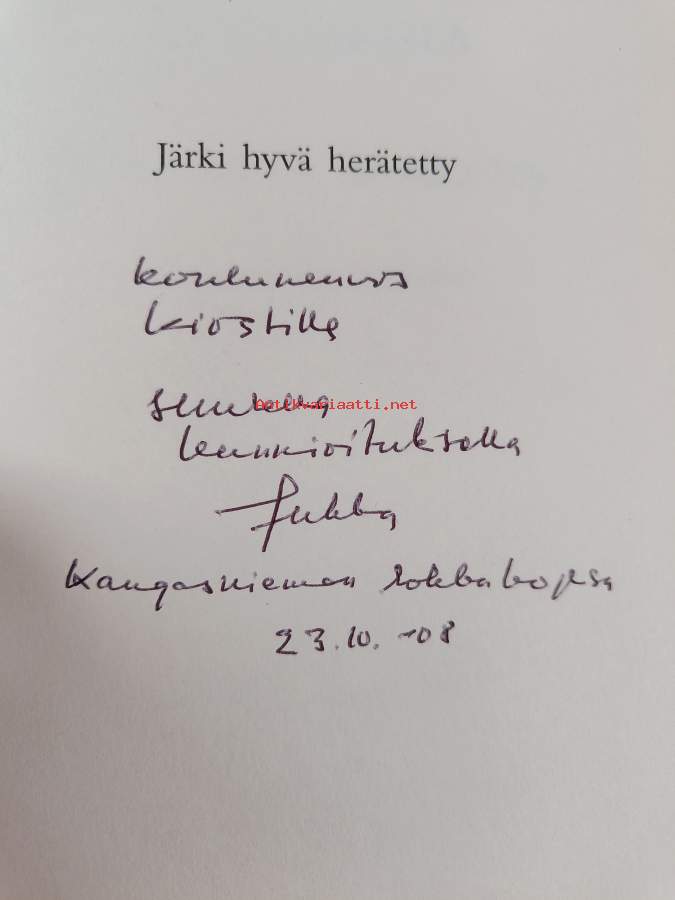 Järki hyvä herätetty
kouluneuvos
Kiostille
suurella
kunnioituksella
Jukka
Kangasniemen
23.10.-08
Antikvariaatti.net